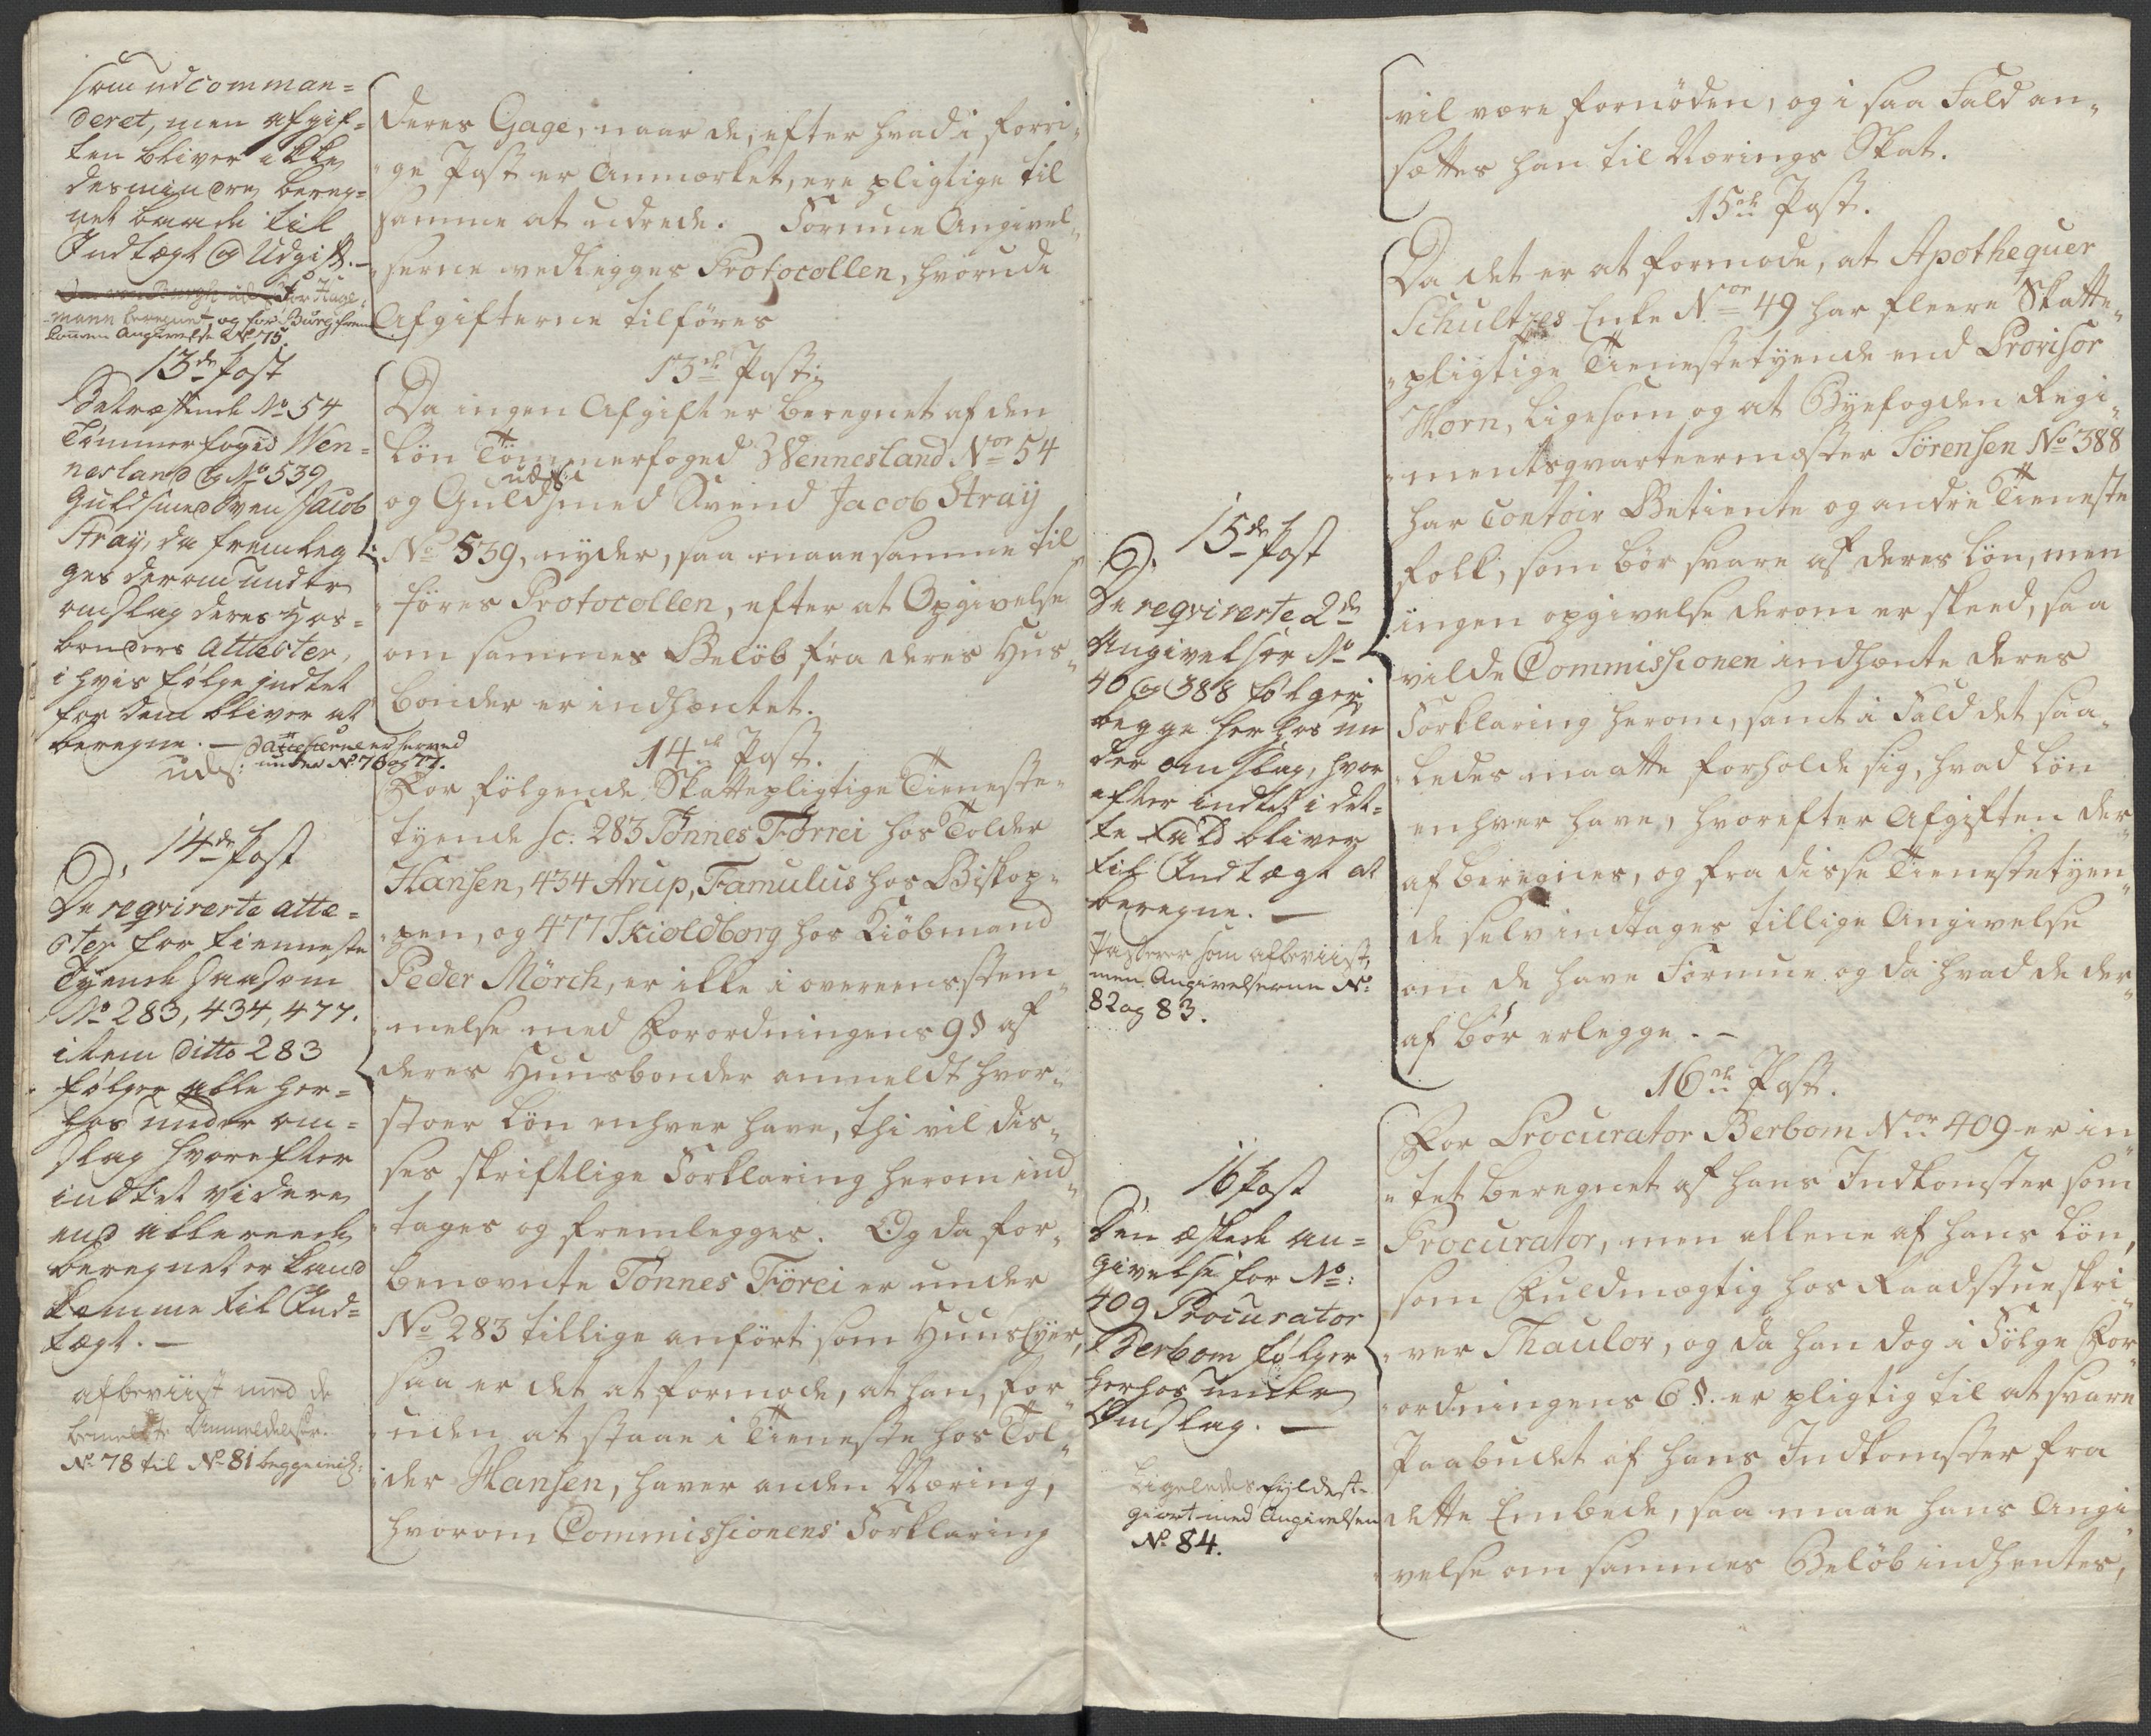 som udcomman=
deret, men afgif=
ten bliver ikke
desmindre bereg=
net baade til
Indtægt og Udgift. —
for Hage=
mann beregnet og for Burg frem
kommen Angivelse No 75.
13de Post
Betræffende No 54
Tømmerfoged Wen=
nesland og No 539
Guldsmed Sven Jacob
Stray, da fremleg
ges derom under
omslag deres Hos=
bonders attester,
i hvis følge indtet
for dem bliver at
beregne. —
Attesterne er herved
under No 76 og 77.
14de Post
De reqvirerte atte=
ster for tienneste
Tyende saasom
No 283, 434, 477.
item ditto 283
følger alle her=
hos under om=
slag hvorefter
indtet videre
end allereede
beregnet er kand
komme til Ind=
tægt. —
afbeviist med de
bemeldte Anmeldelser.
No 78 til No 81 begge incl:
deres Gage, naar de, efter hvad i forri„
„ge Post er Anmærket, ere pligtige til
samme at udrede. Formue Angivel„
„serne vedlegges Protocollen, hvorude
Afgifterne tilføres
13de Post:
Da ingen Afgift er beregnet af den
Løn Tømmerfoged Wennesland Nor 54
og Guldsmed Svend Jacob Straÿ
No 539, nyder, saa maae samme til
„føres Protocollen, efter at Opgivelse
om sammes Beløb fra deres Hus„
bonder er indhæntet.
14de Post.
For følgende Skattepligtige Tieneste„
tyende sc: 283 Tønnes Førrei hos Tolder
Hansen, 434 Arup, Famulus hos Biskop„
„pen, og 477 Skioldborg hos Kiøbmand
Peder Mörch, er ikke i overeensstem„
„melse med Forordningens 9 § af
deres Huusbonder anmeldt hvor„
stoer Løn enhver have, thi vil dis„
ses skriftlige Forklaring herom ind„
„tages og fremlegges. Og da for„
benævnte Tønnes Förei er under
No 283 tillige anført som Huuslyer,
saa er det at formode, at han, for„
„uden at staae i Tieneste hos Tol„
„der Hansen, haver anden Næring,
hvorom Commissionens Forklaring
15de Post
De reqvirerte 2de
Angivelser No
46 og 388 følger
begge herhos un
der omslag, hvor
efter indtet i det=
te Fald bliver
til Indtægt at
beregne. —
Passerer som afbeviist,
men Angivelserne No
82 og 83.
16 Post
Den æskede an=
givelse for No:
409 Procurator
Berbom følger
herhos under
Omslag. —
Ligeledes fyldest=
giort med Angivelsen
No 84.
vil være fornøden, og i saa Fald an„
sættes han til Nærings Skat.
15de Post.
Da det er at formode, at Apothequer
Schultzes Enke Nor 49 har fleere Skatte„
„pligtige Tienestetyende end Provisor
Horn, ligesom og at Byefogden Regi„
„mentsqvarteermester Sörensen No 388
har Contoir Betiente og andre Tieneste
folk, som bør svare af deres Løn, men
ingen opgivelse derom er skeed, saa
vilde Commissionen indhænte deres
Forklaring herom, samt i Fald det saa„
„ledes maatte forholde sig, hvad Løn
enhver have, hvorefter Afgiften der„
af beregnes, og fra disse Tienestetyen„
de selv indtages tillige Angivelse
om de have Formue og da hvad de der„
af bør erlegge. —
16de Post.
For Procurator Berbom Nor 409 er in„
„tet beregnet af hans Indkomster som
Procurator, men allene af hans Løn,
som Fuldmægtig hos Raadstueskri„
„ver Thaulor, og da han dog i Følge For„
„ordningens 6 §. er pligtig til at svare
Paabudet af hans Indkomster fra
dette Embede, saa maae hans Angi„
velse om sammes Beløb indhentes,